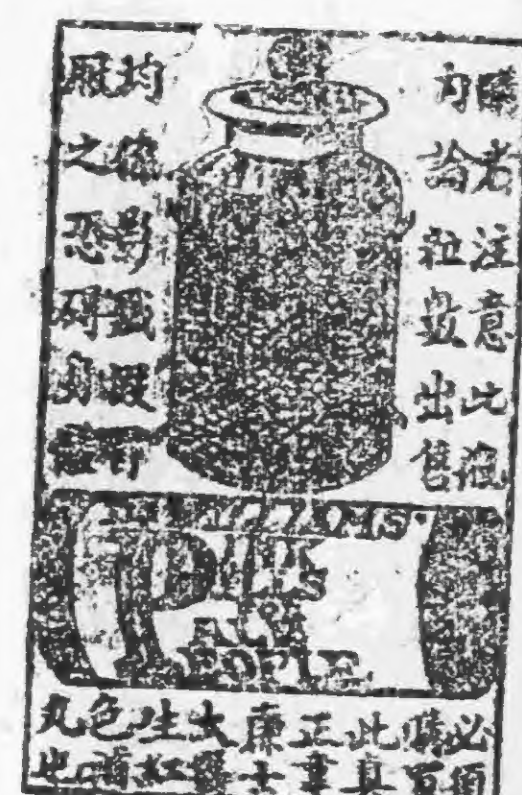 購者注意此瓶
內論粒數出售
均係影戤假冒
服之恐碍身體
WILLIAMS'
PILLS
FOR
PALE
PEOPLE
必須
購買
此真
正韋
廉士
大醫
生紅
色補
丸也